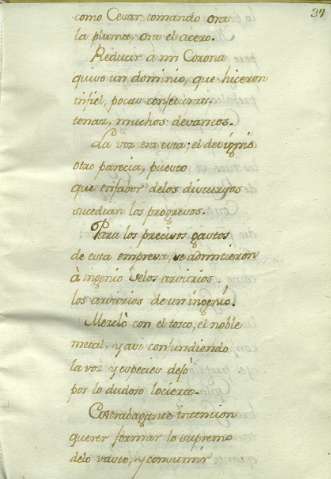 37
como Cesar, tomando ora
la pluma, ora el acero.
Reducir a mi Corona
quiso un dominio, que hicieron
infiel, pocas
tonas, muchos devaneos.
La voz era esta; el designio
otro parecia, puesto
que de los discursos
sucedian los progresos.
Para los precisos gastos
de esta empresa, se admitieron
à ingenio de los arvitrios
los arvitrios de un ingenio.
Mezclò con el tosco, el noble
metal, y assi confundiendo
la voz y especies dejò
por lo dudoso lo cierto.
intencion
querer formar lo supremo
de lo vasto, y consumir